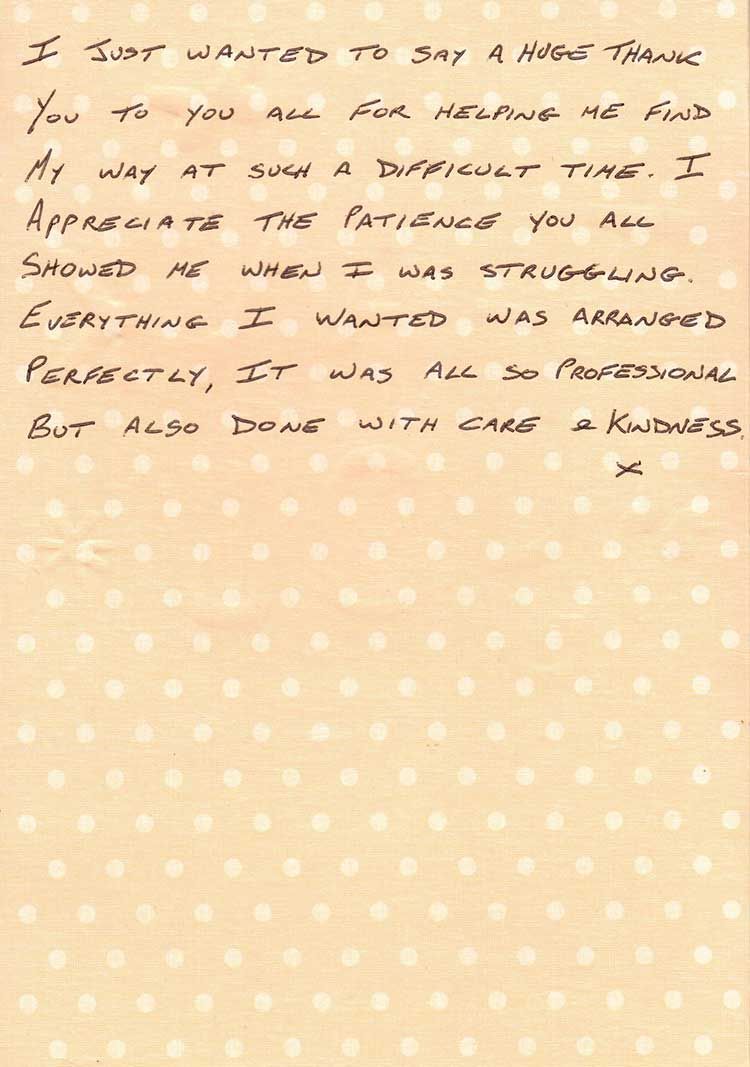 I JUST WANTED TO SAY A HUGE THANK
YOU TO YOU ALL FOR HELPING ME FIND
MY WAY AT SUCH A DIFFICULT TIME. I
APPRECIATE THE PATIENCE YOU ALL
SHOWED ME WHEN I WAS STRUGGLING.
EVERYTHING I WANTED WAS ARRANGED
PERFECTLY, IT WAS ALL SO PROFESSIONAL
BUT ALSO DONE WITH CARE & KINDNESS.
X